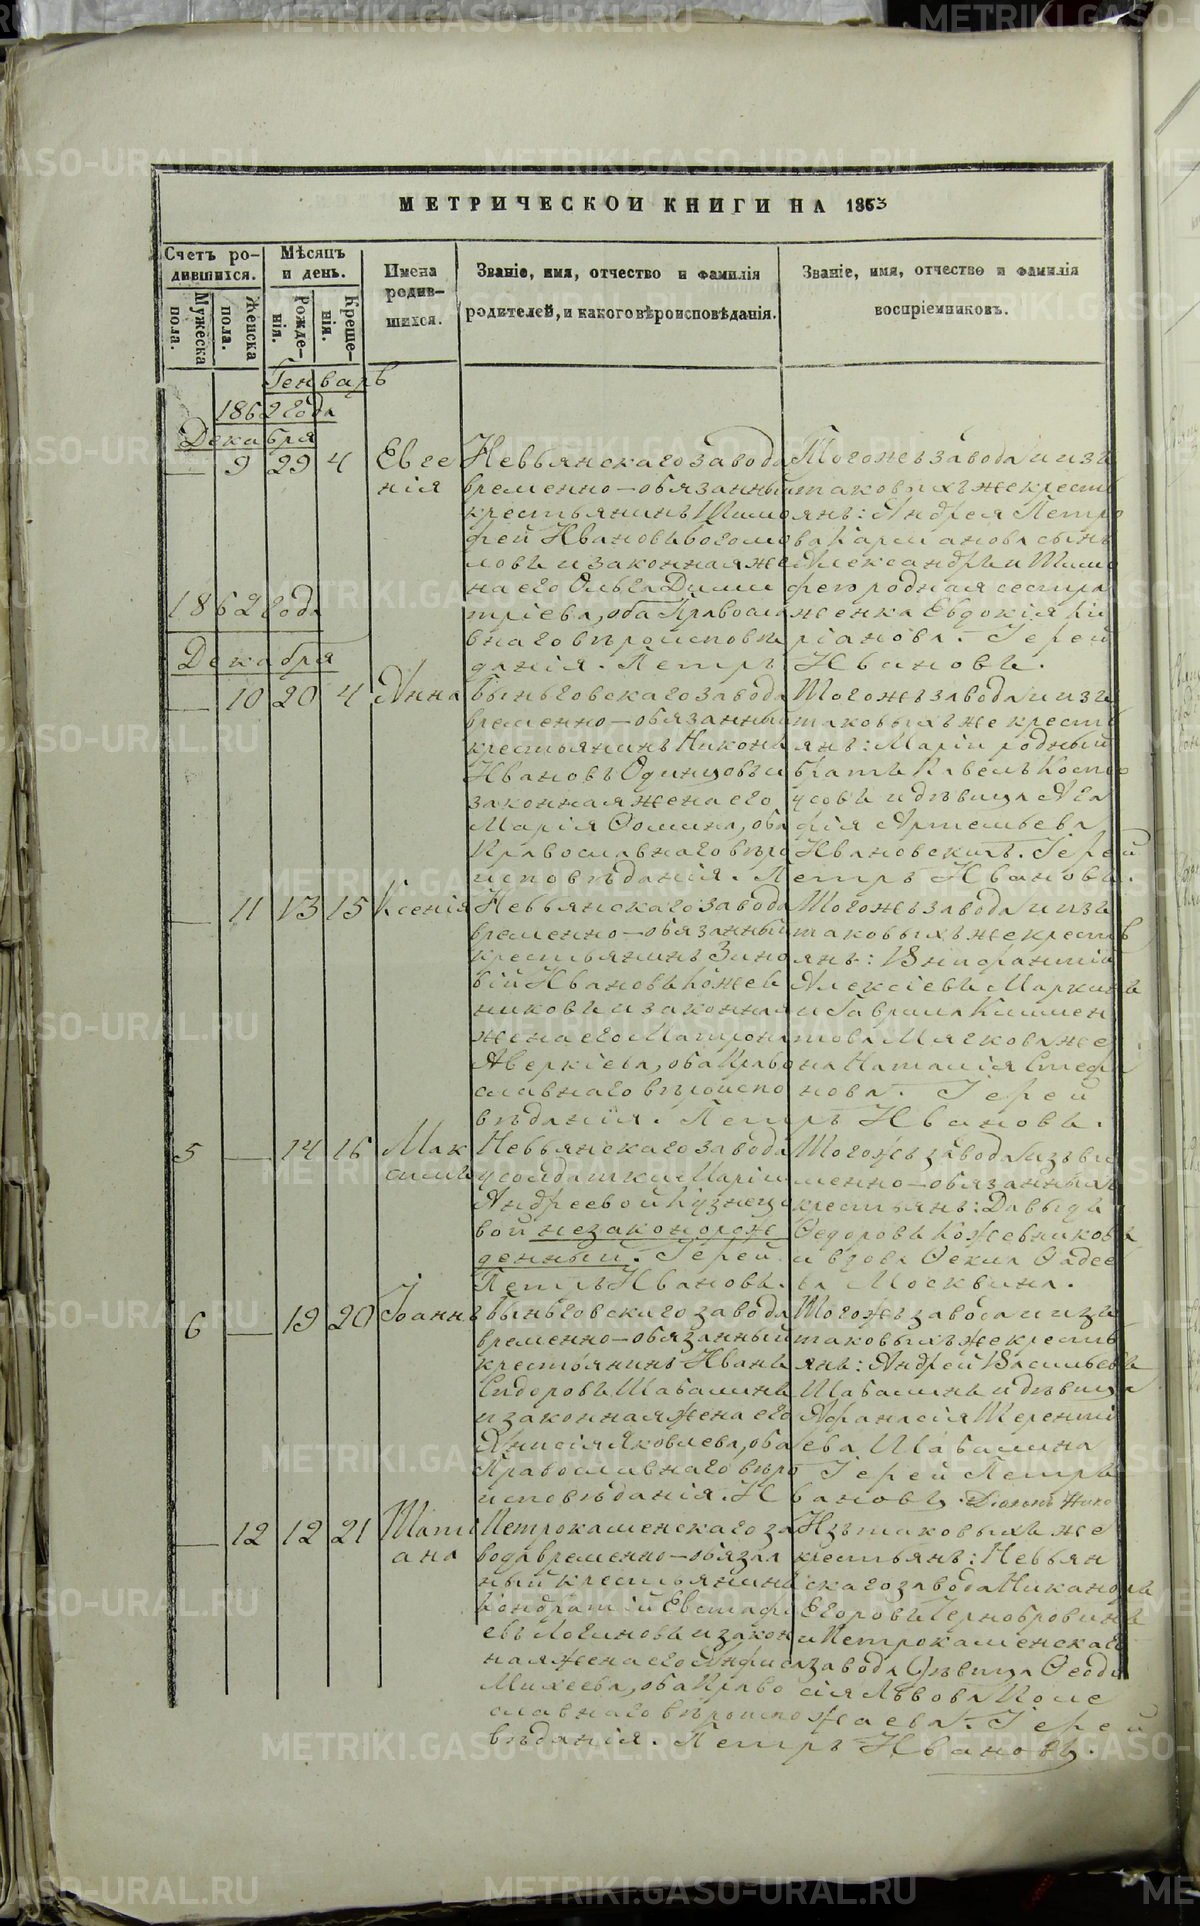 МЕТРИЧЕСКОЙ КНИГИ НА 1863
Счетъ ро-
дившихся.
Мужеска
пола.
Женска
пола.
Мѣсяцъ
и день.
Рожде-
нія.
Креще-
нія.
Имена
родив-
шихся.
Званіе, имя, отчество и фамилія
родителей, и какого вѣроисповѣданія.
Званіе, имя, отчество и фамилія
воспріемниковъ.
Генварь
1862 года
Декабря
— 9 29 4
Евге
нія
Невьянскаго завода
временно-обязанный
крестьянинъ Тимо
фей Ивановъ Богомо
ловъ и законная же
на его Ольга Дими
тріева, оба Правосла
внаго вѣроисповѣ
данія. Іерей Петръ Ивановъ.
Тогожъ завода и изъ
таковыхъ же кресть
янъ: Андрея Петро
ва сынъ
Александръ и Тимо
фею родная сестра
женка Евдокія Ки
ріанова.
1862 года
Декабря
— 10 20 4
Анна
Быньговскаго завода
временно-обязанный
крестьянинъ Никонъ
Ивановъ Одинцовъ и
законная жена его
Марія Ѳомина, оба
Православнаго вѣро
исповѣданія.
Тогожъ завода и изъ
таковыхъ же кресть
янъ: Маріи родный
братъ Павелъ
и дѣвица Ага
фія Артемьева
Ивановскихъ. Іерей
Петръ Ивановъ.
— 11 13 15
Ксенія
Невьянскаго завода
временно-обязанный
крестьянинъ Зино
вій Ивановъ Кожев
никовъ и законная
жена его Матрона
Аверкіева, оба Право
славнаго вѣроиспо
вѣданія.
Тогожъ завода и изъ
таковыхъ же кресть
янъ:
Алексіевъ
и Гавріила Климен
това Мягкова же
на Наталія Стефа
нова. Іерей
Петръ Ивановъ.
5 — 14 16
Мак
симъ
Невьянскаго завода
у солдатки Маріи
Андреевой Кузнецо
вой незаконорож
денный. Іерей
Петръ Ивановъ.
Тогожъ завода изъ вре
менно-обязанныхъ
крестьянъ: Давыдъ
Ѳедоровъ Кожевниковъ
и вдова Ѳекла Ѳадее
ва Москвина.
6 — 19 20
Іоаннъ
Быньговскаго завода
временно-обязанный
крестьянинъ Иванъ
Сидоровъ Шабалинъ
и законная жена его
Анисія Яковлева, оба
Православнаго вѣро
исповѣданія.
Тогожъ завода и изъ
таковыхъ же кресть
янъ: Андрей Васильевъ
Шабалинъ и дѣвица
Афанасія Терентi
ева Шабалина
Іерей Петръ
Ивановъ.
— 12 12 21
Таті
ана
Петрокаменскаго за
вода временно-обязан
ный крестьянинъ
Кондратій Евстафі
евъ Логиновъ и закон
ная жена его Анфиса
Михеева, оба Право
славнаго вѣроиспо
вѣданія.
Изъ таковыхъ же
крестьянъ: Невьян
скаго завода Никаноръ
Егоровъ Чернобровинъ
и Петрокаменскаго
завода дѣвица Ѳеодо
сія Львова Поле
жаева. Іерей
Петръ Ивановъ.